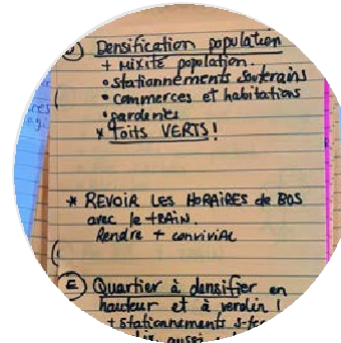 Densification population
+ Mixité population.
• stationnements souterains
• commerces et habitations
• garderies
* Toits VERTS!
* REVOIR LES HORAIRES de BUS
avec le tRAiN.
Rendre + convivial
E) Quartier à densifier en
hauteur et à verdir!
+ stationnements
aussi